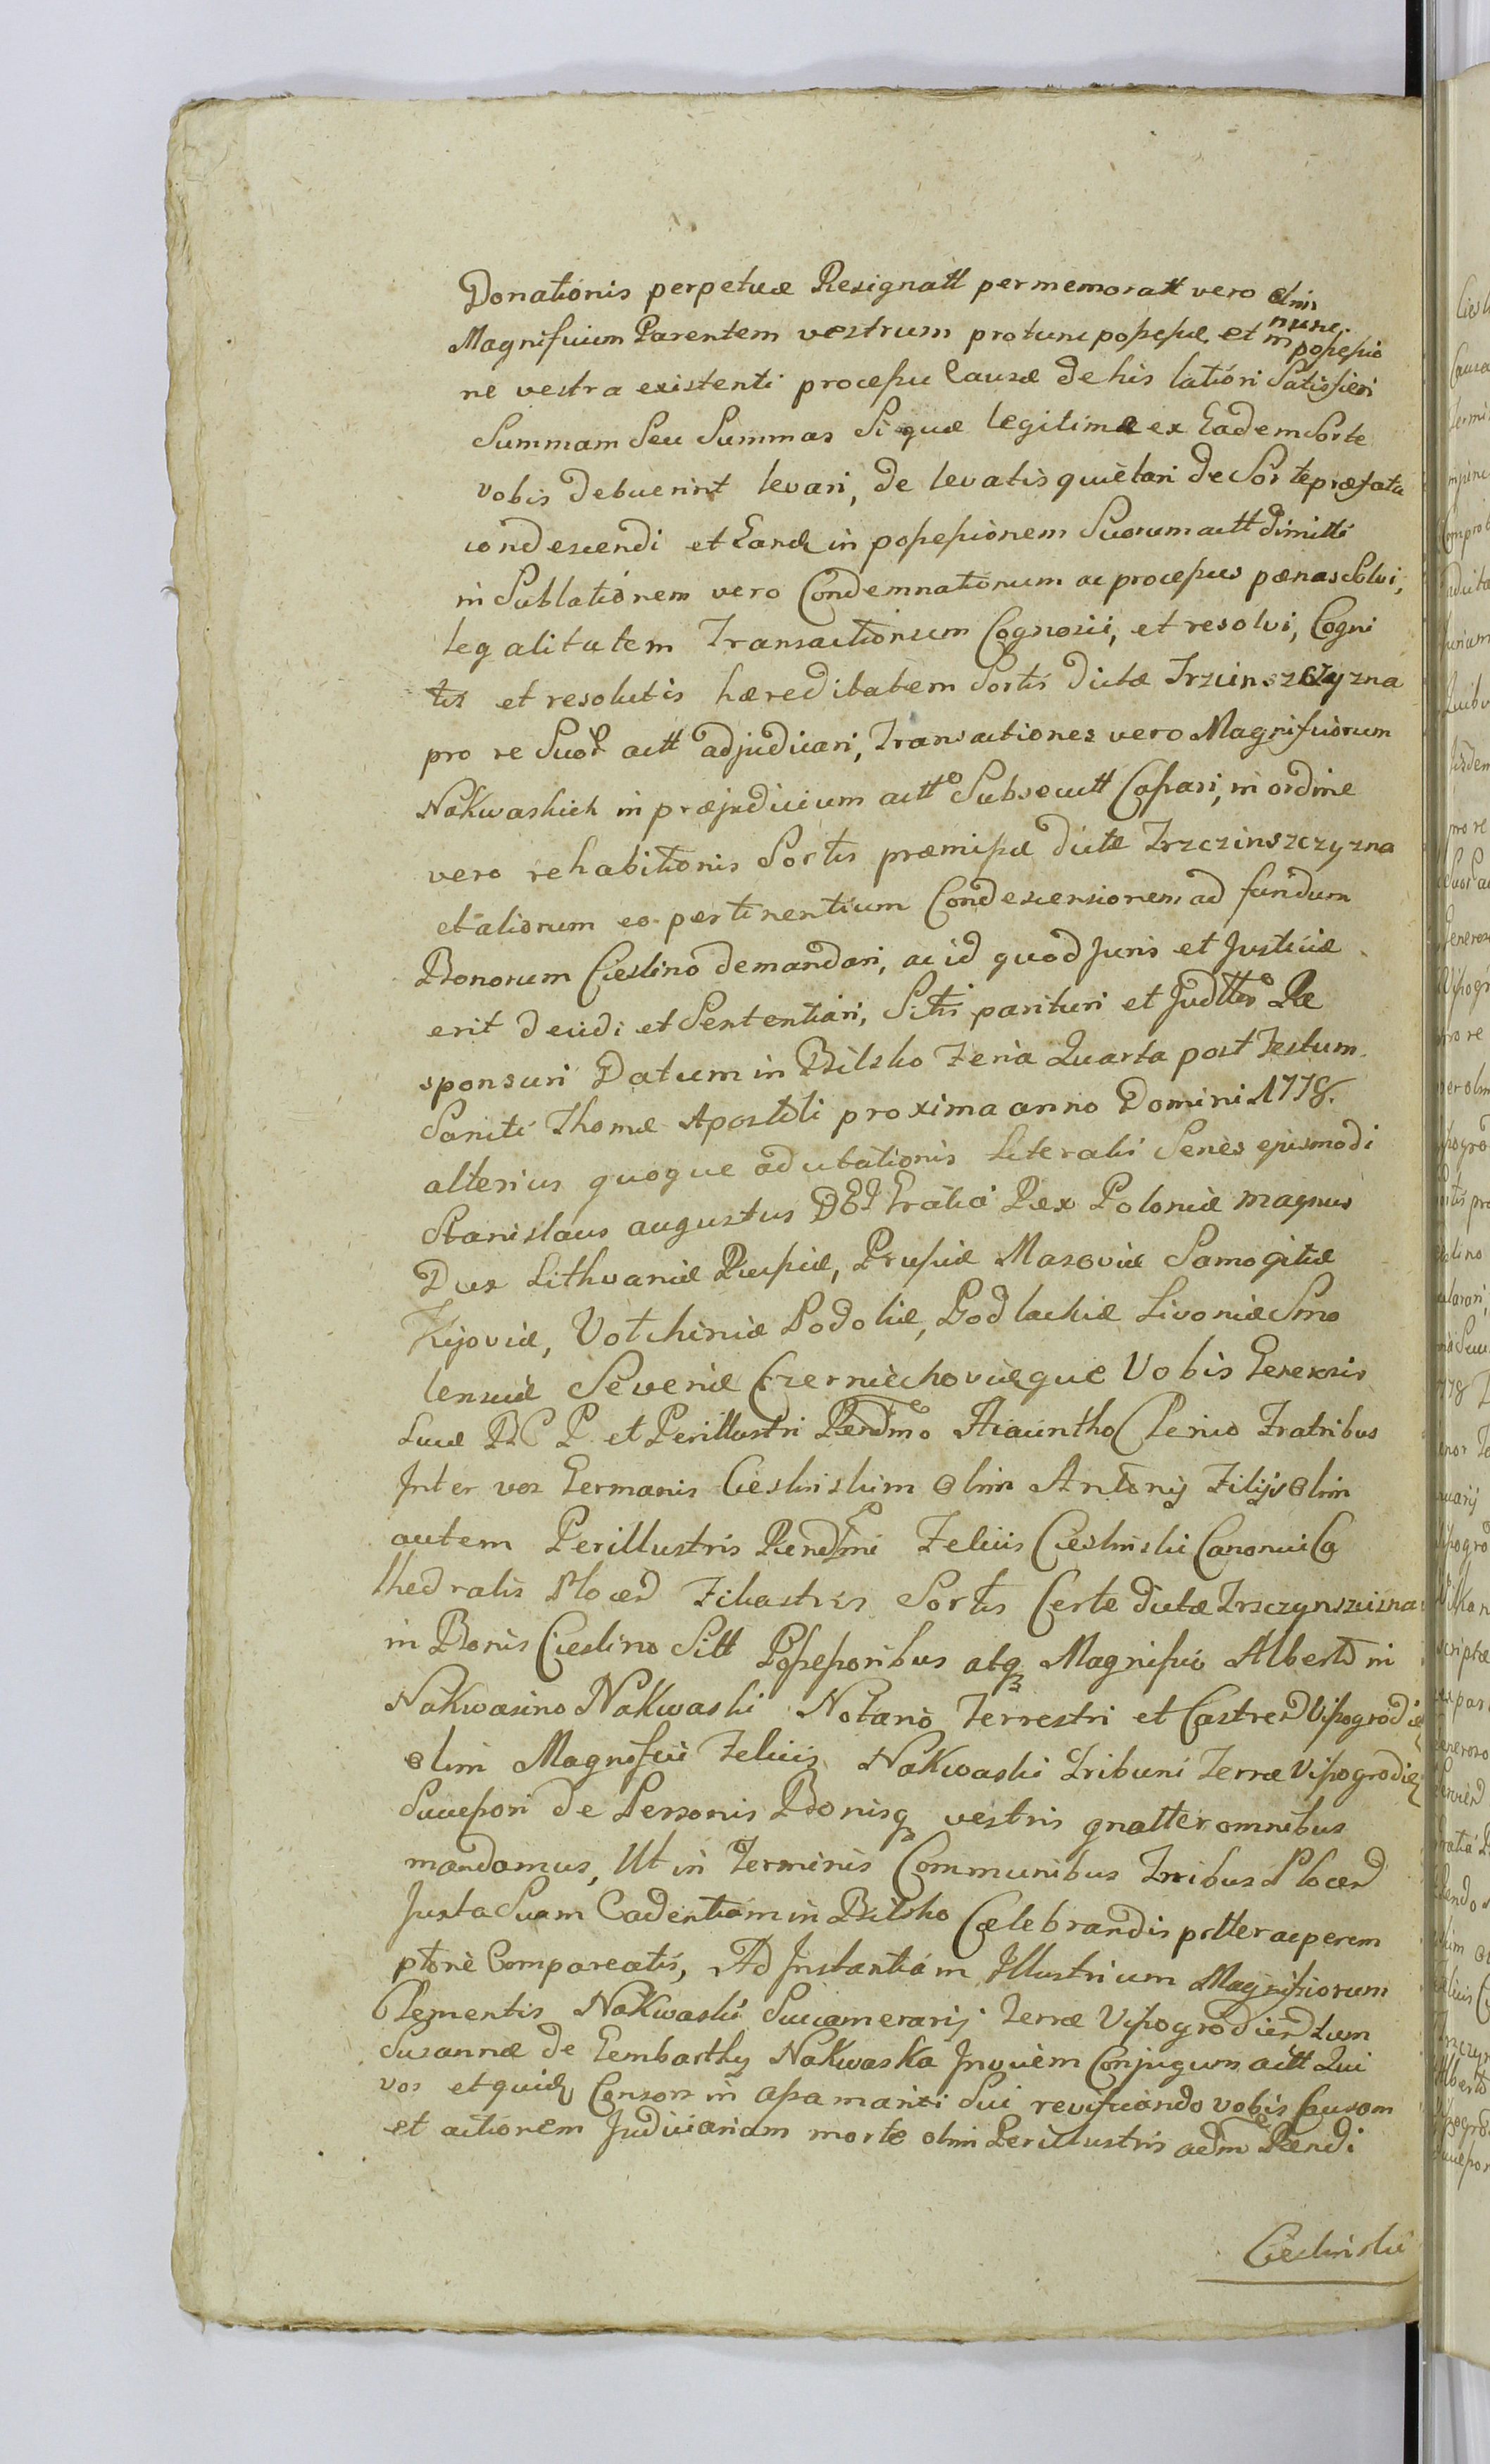 Donationis perpetuæ Resignatt per memoratt vero olim
Magnificum Parentem vestrum protunc possessæ, et nunc in possessio
ne vestra existenti processu causæ de his latióri Satisfieri
Summam Seu Summas Si quæ legitimæ ex Eadem Sorte
vobis debuerint levari, de levatis quiètari de Sorte præfata
condescendi et Eand in possessionem Suorum actt dimitti
in Sublatiónem vero Condemnationum ac processus pænas Solvi,
legalitatem Transactionum Cognosci, et resolvi, Cogni
tis et resolutis hæreditatem Sortis dictæ Trzcinszczyzna
pro re Suor actt adjudicari, Transactiones vero Magnificorum
Nakwaskich in præjudicium actt Subsecutt Cassari, in ordine
vero rehabitionis Sortis præmissæ dictæ Trzczinszczyzna
et aliorum eo pertinentium Condescensionem ad fundum
Bonorum Cieslino demandari, ac id quod Juris et Justiciæ
erit decidi et Sententiari, Sitis parituri et Judtter Re
sponsuri Datum in Bilsko Feria Quarta post Festum
Sancti Thomæ Apostoli proxima anno Domini 1778.
alterius quoque adcitationis Literalis Series ejusmodi
Stanislaus augustus DEI Gratia Rex Poloniæ magnus
Dux Lithvaniæ Russiæ, Prussiæ Masoviæ Samogitiæ
Kijoviæ, Volchiniæ Podoliæ, Podlachiæ Livoniæ Smo
lensciæ Severiæ Czerniechoviæque Vobis Generosis
Lucæ BCP et Perillustri Rendmo Hiacintho Clerico Fratribus
Inter vos Germanis Cieslinskim olim Antonij Filijs olim
autem Perillustris Rendmi Felicis Cieslinski Canonici Ca
thedralis Plocen Filiastris Sortis Certe dictæ Trsczynszcizna
in Bonis Cieslino Sitt Possessoribus atq Magnifico Alberto in
Nakwasino Nakwaski Notario Terrestri et Castren Vissogrodien
olim Magnifici Felicis Nakwaski Tribuni Terræ Vissogrodien
Successori de Personis Bonisq vestris gnatter omnibus
mandamus, Ut in Terminis Communibus Tribus Plocen
Juxta Suam Cadentiam in Bilsko Cælebrandis pltter ac perem
ptoriè Compareatis, Ad Instantiam Illustrium Magnificorum
Clementis Nakwaski Succamerarij Terræ Vissogrodien tum
Susannæ de Gembarthy Nakwaska Invicèm Conjugum actt Qui
vos et quidq Consors in assa mariti Sui revificando vobis Causam
et actionem Judiciariam morte olim Perillustris adm Rendi
Cieslinski